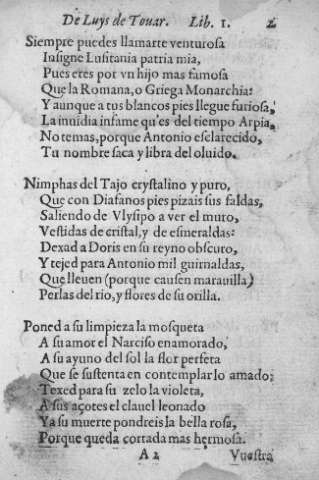 De Luys de Touar. Lib. 1. 2
Siempre puedes llamarte venturosa
Insigne Lusitania patria mia,
Pues eres por vn hijo mas famosa
Que la Romana, o Griega Monarchia:
Y aunque a tus blancos pies llegue furiosa,
La inuidia infame qu'es del tiempo Arpia,
No temas, porque Antonio esclarecido,
Tu nombre saca y libra del oluido.
Nimphas del Tajo crystalino y puro,
Que con Diafanos pies pizais sus faldas,
Saliendo de Vlysipo a ver el muro,
Vestidas de cristal, y de esmeraldas:
Dexad a Doris en su reyno obscuro,
Y tejed para Antonio mil guirnaldas,
Que lleuen (porque causen marauilla)
Perlas del rio, y flores de su orilla.
Poned a su limpieza la mosqueta
A su amor el Narciso enamorado,
A su ayuno del sol la flor perfeta
Que se sustenta en contemplar lo amado;
Texed para su zelo la violeta,
A sus açotes el clauel leonado
Ya su muerte pondreis la bella rosa,
Porque queda cortada mas hermosa.
A 2 Vuestra